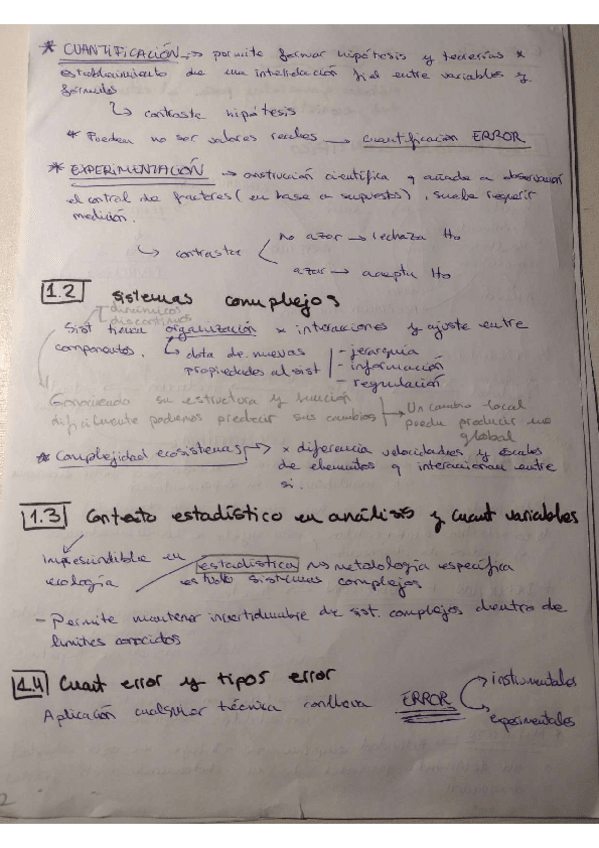 * CUANTIFICACIÓN → permite formar hipótesis y teorías x
establecimiento de una interrelación entre variables y
fórmulas
↳ contraste hipótesis
* Pueden no ser valores reales → cuantificación ERROR
* EXPERIMENTACIÓN → construcción científica q añade a observación
el control de factores (en base a supuestos), suele requerir
medición.
↳ contrastar
no azar → rechaza Ho
azar → acepta Ho
1.2 sistemas complejos
dinámicos
discontinuos
Sist tienen organización x interacciones y ajuste entre
componentes. ↳ dota de nuevas
propiedades al sist
- jerarquía
- información
- regulación
Conociendo su estructura y función
difícilmente podemos predecir sus cambios → Un cambio local
puede producir uno
global
* Complejidad ecosistemas → x diferencia velocidades y escalas
de elementos q interaccionan entre
si.
1.3 Contexto estadístico en análisis y cuant variables
Imprescindible en
ecología
estadística → metodología específica
estudio sistemas complejos
- Permite mantener incertidumbre de sist. complejos dentro de
límites conocidos
1.4 Cuant error y tipos error
Aplicación cualquier técnica conlleva ERROR
instrumentales
experimentales
2